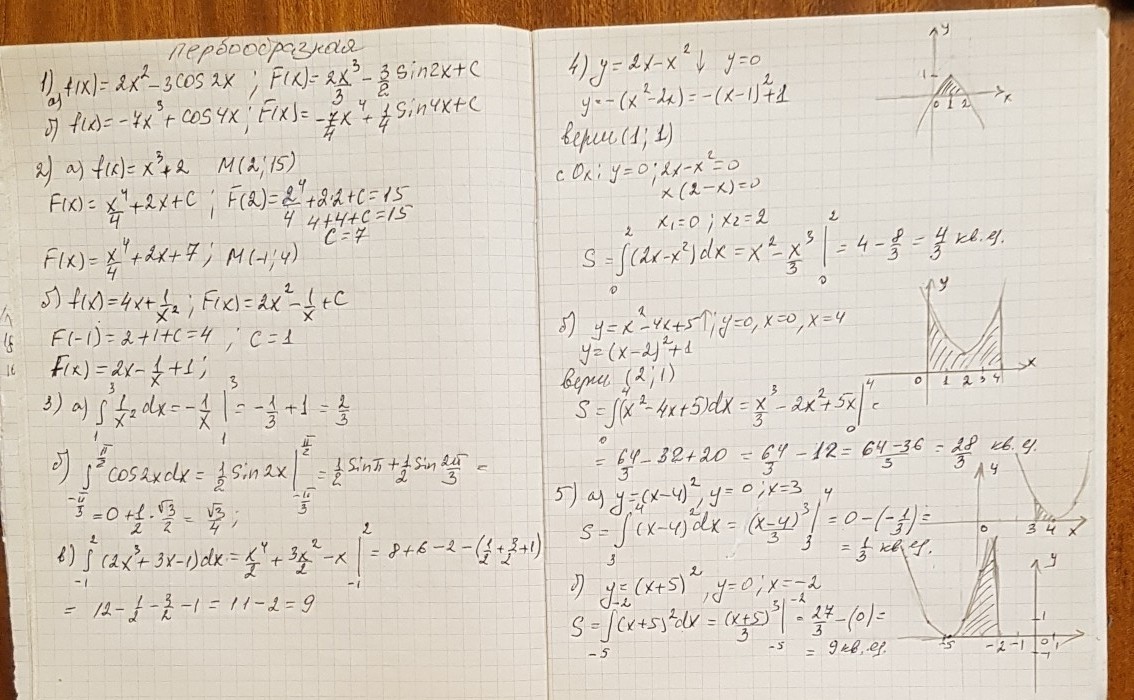 Первообразная
1) а) f(x) = 2x² - 3cos 2x ; F(x) = 2x³/3 - 3/2 sin2x + C
б) f(x) = -7x³ + cos4x ; F(x) = -7/4 x⁴ + 1/4 sin4x + C
2) а) f(x) = x³ + 2 M(2; 15)
F(x) = x⁴/4 + 2x + C ; F(2) = 2⁴/4 + 2·2 + C = 15
4 + 4 + C = 15
C = 7
F(x) = x⁴/4 + 2x + 7 ; M(-1; 4)
б) f(x) = 4x + 1/x² ; F(x) = 2x² - 1/x + C
F(-1) = 2 + 1 + C = 4 ; C = 1
F(x) = 2x - 1/x + 1 ;
3) а) ∫₁³ 1/x² dx = -1/x |₁³ = -1/3 + 1 = 2/3
б) ∫_{-π/3}^{π/2} cos2xdx = 1/2 sin2x |_{-π/3}^{π/2} = 1/2 sinπ + 1/2 sin 2π/3 =
= 0 + 1/2 · √3/2 = √3/4 ;
в) ∫_{-1}^{2} (2x³ + 3x - 1)dx = x⁴/2 + 3x²/2 - x |_{-1}^{2} = 8 + 6 - 2 - (1/2 + 3/2 + 1)
= 12 - 1/2 - 3/2 - 1 = 11 - 2 = 9
4) y = 2x - x² ↓ y = 0
y = -(x² - 2x) = -(x - 1)² + 1
верш (1; 1)
с Ox: y = 0 ; 2x - x² = 0
x(2 - x) = 0
x₁ = 0 ; x₂ = 2
S = ∫₀² (2x - x²)dx = x² - x³/3 |₀² = 4 - 8/3 = 4/3 кв.ед.
y
1
0 1 2 x
б) y = x² - 4x + 5 ↑ ; y = 0, x = 0, x = 4
y = (x - 2)² + 1
верш (2; 1)
S = ∫₀⁴ (x² - 4x + 5)dx = x³/3 - 2x² + 5x |₀⁴ =
= 64/3 - 32 + 20 = 64/3 - 12 = (64 - 36)/3 = 28/3 кв.ед.
y
0 1 2 3 4 x
5) а) y = (x - 4)², y = 0 ; x = 3
S = ∫₃⁴ (x - 4)²dx = (x - 4)³/3 |₃⁴ = 0 - (-1/3) =
= 1/3 кв.ед.
y
0 3 4 x
б) y = (x + 5)², y = 0 ; x = -2
S = ∫_{-5}^{-2} (x + 5)²dx = (x + 5)³/3 |_{-5}^{-2} = 27/3 - (0) =
= 9 кв.ед.
y
1
-5 -2 -1 0 1
-1